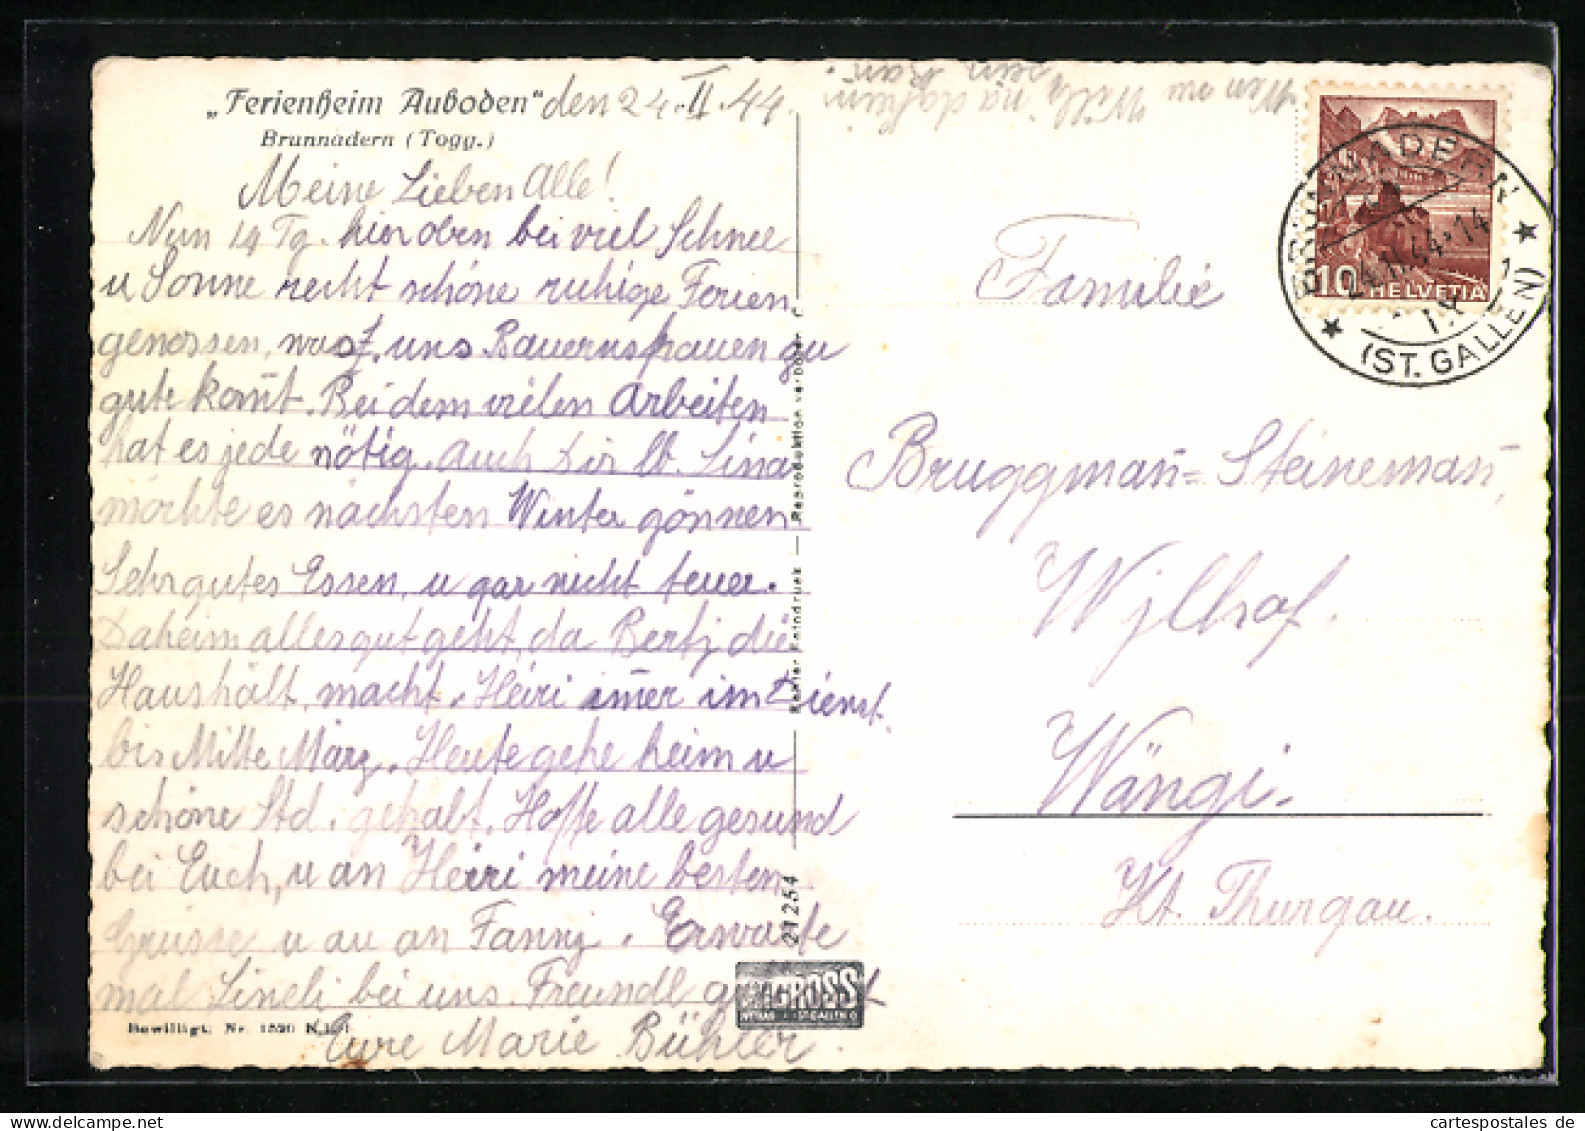 „Ferienheim Auboden“ den 24. II. 44.
Brunnadern (Togg.)
Meine Lieben Alle!
Nun 14 Tg. hier oben bei viel Schnee
u. Sonne recht schöne ruhige Ferien
genossen, was uns Bauernfrauen zu
gute kom̄t. Bei dem vielen Arbeiten
hat es jede nötig. Auch Dir lb. Lina
möchte es nächsten Winter gönnen.
Sehr gutes Essen, u gar nicht teuer.
Daheim alles gut geht, da Bertj die
Haushalt. macht. Heiri im̄er im Dienst
bis Mitte März. Heute gehe heim u
schöne Std. gehabt. Hoffe alle gesund
bei Euch, u an Heiri meine besten
Grüsse u au an Fannj. Erwarte
mal Lineli bei uns. Freundl
Eure Marie Bühler.
Bewilligt: Nr. 1520
Reproduktion verboten
Echter Feindruck
21254
GROSS
ST.GALLEN
Familie
Bruggman̄=Steineman̄,
Wjlhof.
Wängi.
Kt. Thurgau.
10 HELVETIA
BRUNNADERN
24.II.44-14
(ST.GALLEN)
cartespostales de